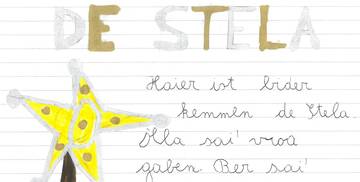 DE STELA
Haier ist bider
kemmen de Stela.
Ólla sai' vroa
gaben. Ber sai'